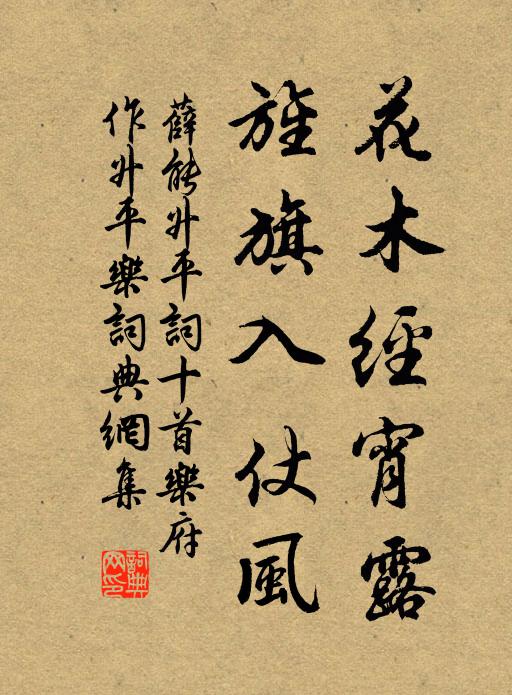 花木經宵露
旌旗入仗風
薛能升平詞十首樂府
作升平樂詞典網集
詞典網印